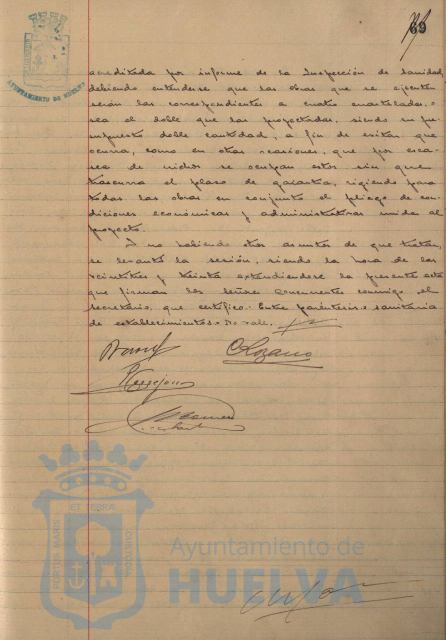 69
AYUNTAMIENTO DE HUELVA
acreditada por informe de la Inspección de sanidad,
debiendo entenderse que las obras que se ejecuten
serán las correspondientes a cuatro cuarteladas, o
sea el doble que las proyectadas, siendo su pre-
supuesto doble cantidad, a fin de evitar que
ocurra, como en otras ocasiones, que por esca-
sez de nichos se ocupan estos sin que
trascurra el plazo de garantía, rigiendo para
todas las obras en conjunto el pliego de con-
diciones económicas y administrativas unida al
proyecto.
Y no habiendo otros asuntos de que tratar,
se levantó la sesión, siendo la hora de las
veintitres y treinta extendiendose la presente acta
que firman los señores concurrentes conmigo el
Secretario, que certifico. Entre paréntesis = sanitaria
de establecimientos = No vale.
C Lozano
PORTUS MARIS ET TERRÆ CUSTODIA
Ayuntamiento de
HUELVA